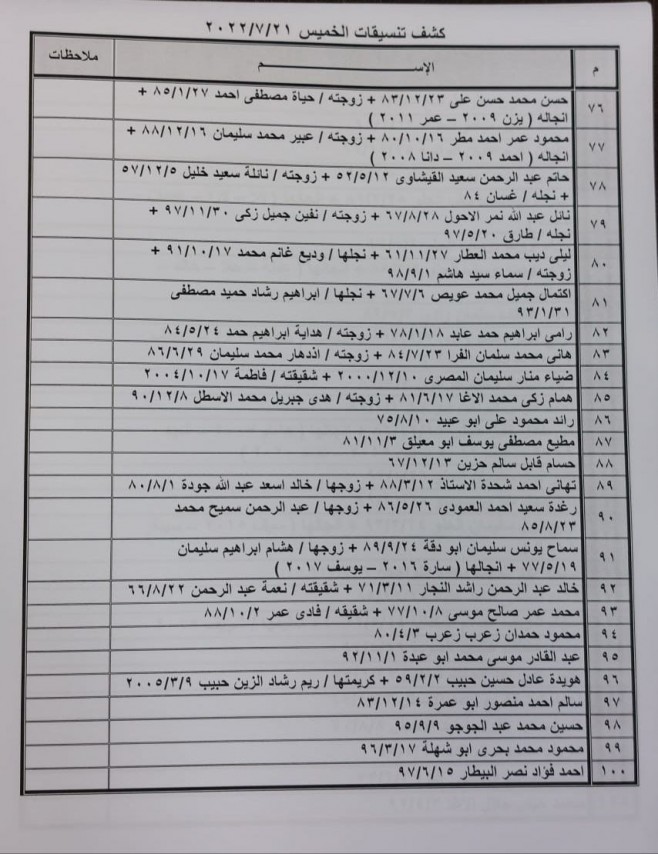 كشف تنسيقات الخميس ٢٠٢٢/٧/٢١
م الإســـم ملاحظات
٧٦ حسن محمد حسن على ٨٣/١٢/٢٣ + زوجته / حياة مصطفى احمد ٨٥/١/٢٧ +
انجاله ( يزن ٢٠٠٩ – عمر ٢٠١١ )
٧٧ محمود عمر احمد مطر ٨٠/١٠/١٦ + زوجته / عبير محمد سليمان ٨٨/١٢/١٦ +
انجاله ( احمد ٢٠٠٩ – دانا ٢٠٠٨ )
٧٨ حاتم عبد الرحمن سعيد القيشاوى ٥٢/٥/١٢ + زوجته / نائلة سعيد خليل ٥٧/١٢/٥
+ نجله / غسان ٨٤
٧٩ نائل عبد الله نمر الاحول ٦٧/٨/٢٨ + زوجته / نفين جميل زكى ٩٧/١١/٣٠ +
نجله / طارق ٩٧/٥/٢٠
٨٠ ليلى ديب محمد العطار ٦١/١١/٢٧ + نجلها / وديع غانم محمد ٩١/١٠/١٧ +
زوجته / سماء سيد هاشم ٩٨/٩/١
٨١ اكتمال جميل محمد عويص ٦٧/٧/٦ + نجلها / ابراهيم رشاد حميد مصطفى
٩٣/١/٣١
٨٢ رامى ابراهيم حمد عابد ٧٨/١/١٨ + زوجته / هداية ابراهيم حمد ٨٤/٥/٢٤
٨٣ هانى محمد سلمان الفرا ٨٤/٧/٢٣ + زوجته / اذدهار محمد سليمان ٨٦/٦/٢٩
٨٤ ضياء منار سليمان المصرى ٢٠٠٠/١٢/١٠ + شقيقته / فاطمة ٢٠٠٤/١٠/١٧
٨٥ همام زكى محمد الاغا ٨١/٦/١٧ + زوجته / هدى جبريل محمد الاسطل ٩٠/١٢/٨
٨٦ رائد محمود على ابو عبيد ٧٥/٨/١٠
٨٧ مطيع مصطفى يوسف ابو معيلق ٨١/١١/٣
٨٨ حسام قابل سالم حزين ٦٧/١٢/١٣
٨٩ تهانى احمد شحدة الاستاذ ٨٨/٣/١٢ + زوجها / خالد اسعد عبد الله جودة ٨٠/٨/١
٩٠ رغدة سعيد احمد العمودى ٨٦/٥/٢٦ + زوجها / عبد الرحمن سميح محمد
٨٥/٨/٢٣
٩١ سماح يونس سليمان ابو دقة ٨٩/٩/٢٤ + زوجها / هشام ابراهيم سليمان
٧٧/٥/١٩ + انجالها ( سارة ٢٠١٦ – يوسف ٢٠١٧ )
٩٢ خالد عبد الرحمن راشد النجار ٧١/٣/١١ + شقيقته / نعمة عبد الرحمن ٦٦/٨/٢٢
٩٣ محمد عمر صالح موسى ٧٧/١٠/٨ + شقيقه / فادى عمر ٨٨/١٠/٢
٩٤ محمود حمدان زعرب زعرب ٨٠/٤/٣
٩٥ عبد القادر موسى محمد ابو عبدة ٩٢/١١/١
٩٦ هويدة عادل حسين حبيب ٥٩/٢/٢ + كريمتها / ريم رشاد الزين حبيب ٢٠٠٥/٣/٩
٩٧ سالم احمد منصور ابو عمرة ٨٣/١٢/١٤
٩٨ حسين محمد عبد الجوجو ٩٥/٩/٩
٩٩ محمود محمد بحرى ابو شهلة ٩٦/٣/١٧
١٠٠ احمد فؤاد نصر البيطار ٩٧/٦/١٥